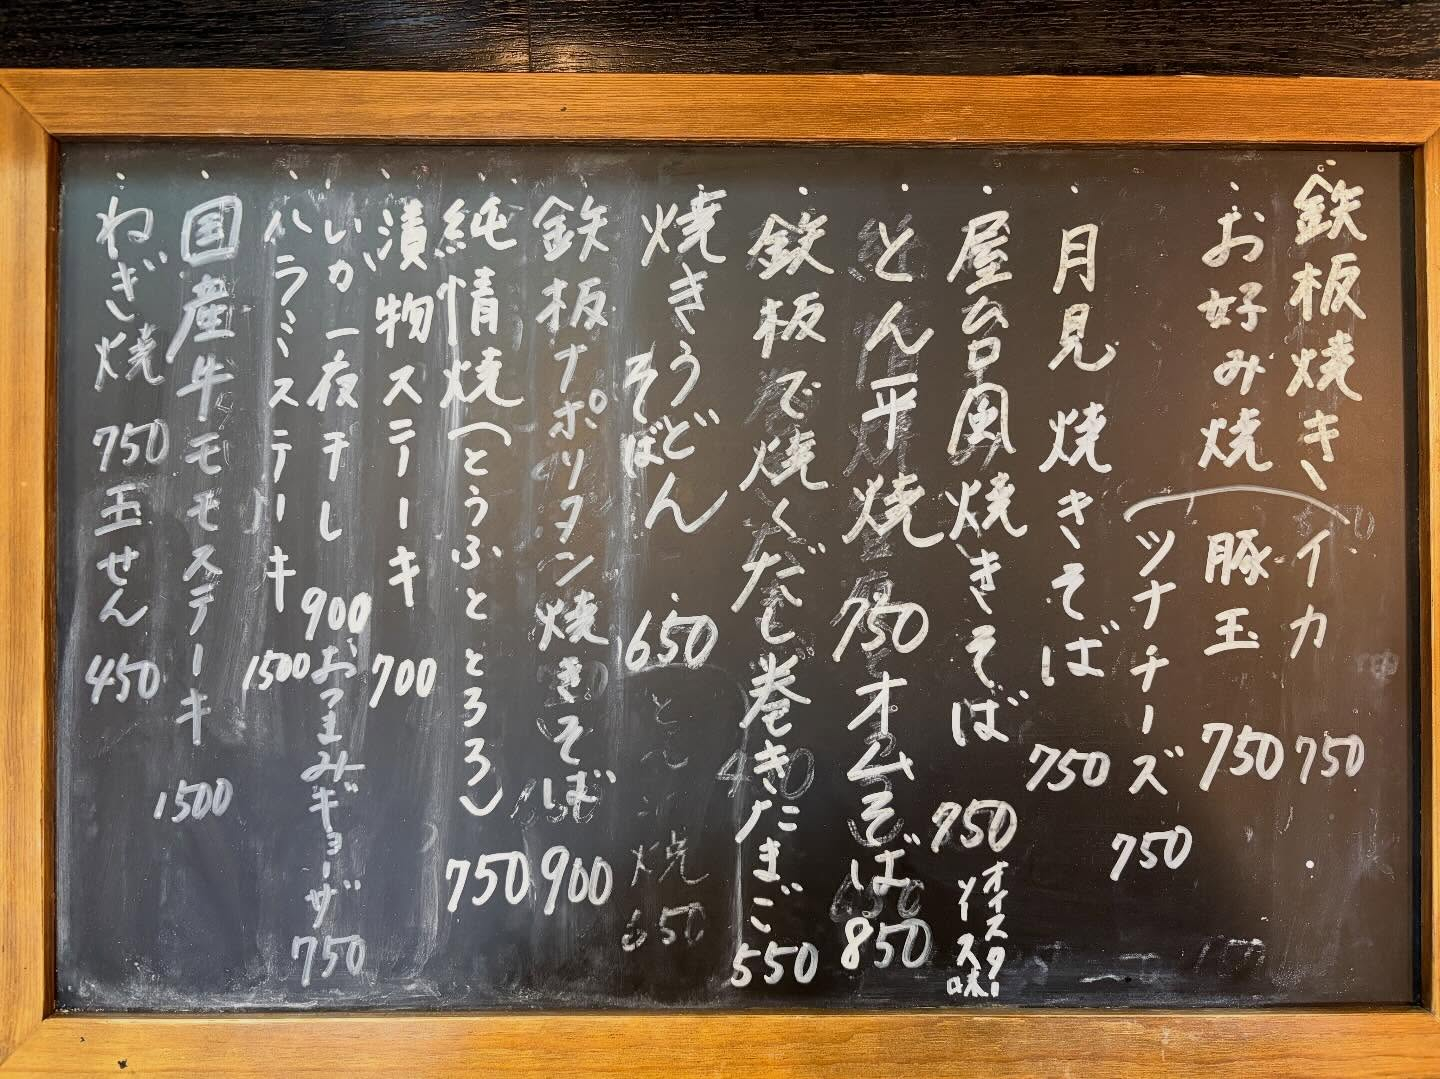 鉄板焼き
イカ 750
お好み焼
豚玉 750
ツナチーズ 750
月見焼きそば 750
屋台風焼きそば 750
オイスターソース味
とん平焼 750
オムそば 850
鉄板で焼くだし巻きたまご 550
焼きうどん
そば 650
鉄板ナポリタン焼きそば 900
純情焼(とうふととろろ) 750
漬物ステーキ 700
いか一夜干し 900
おつまみギョーザ 750
ハラミステーキ 1500
国産牛モモステーキ 1500
ねぎ焼 750
玉せん 450